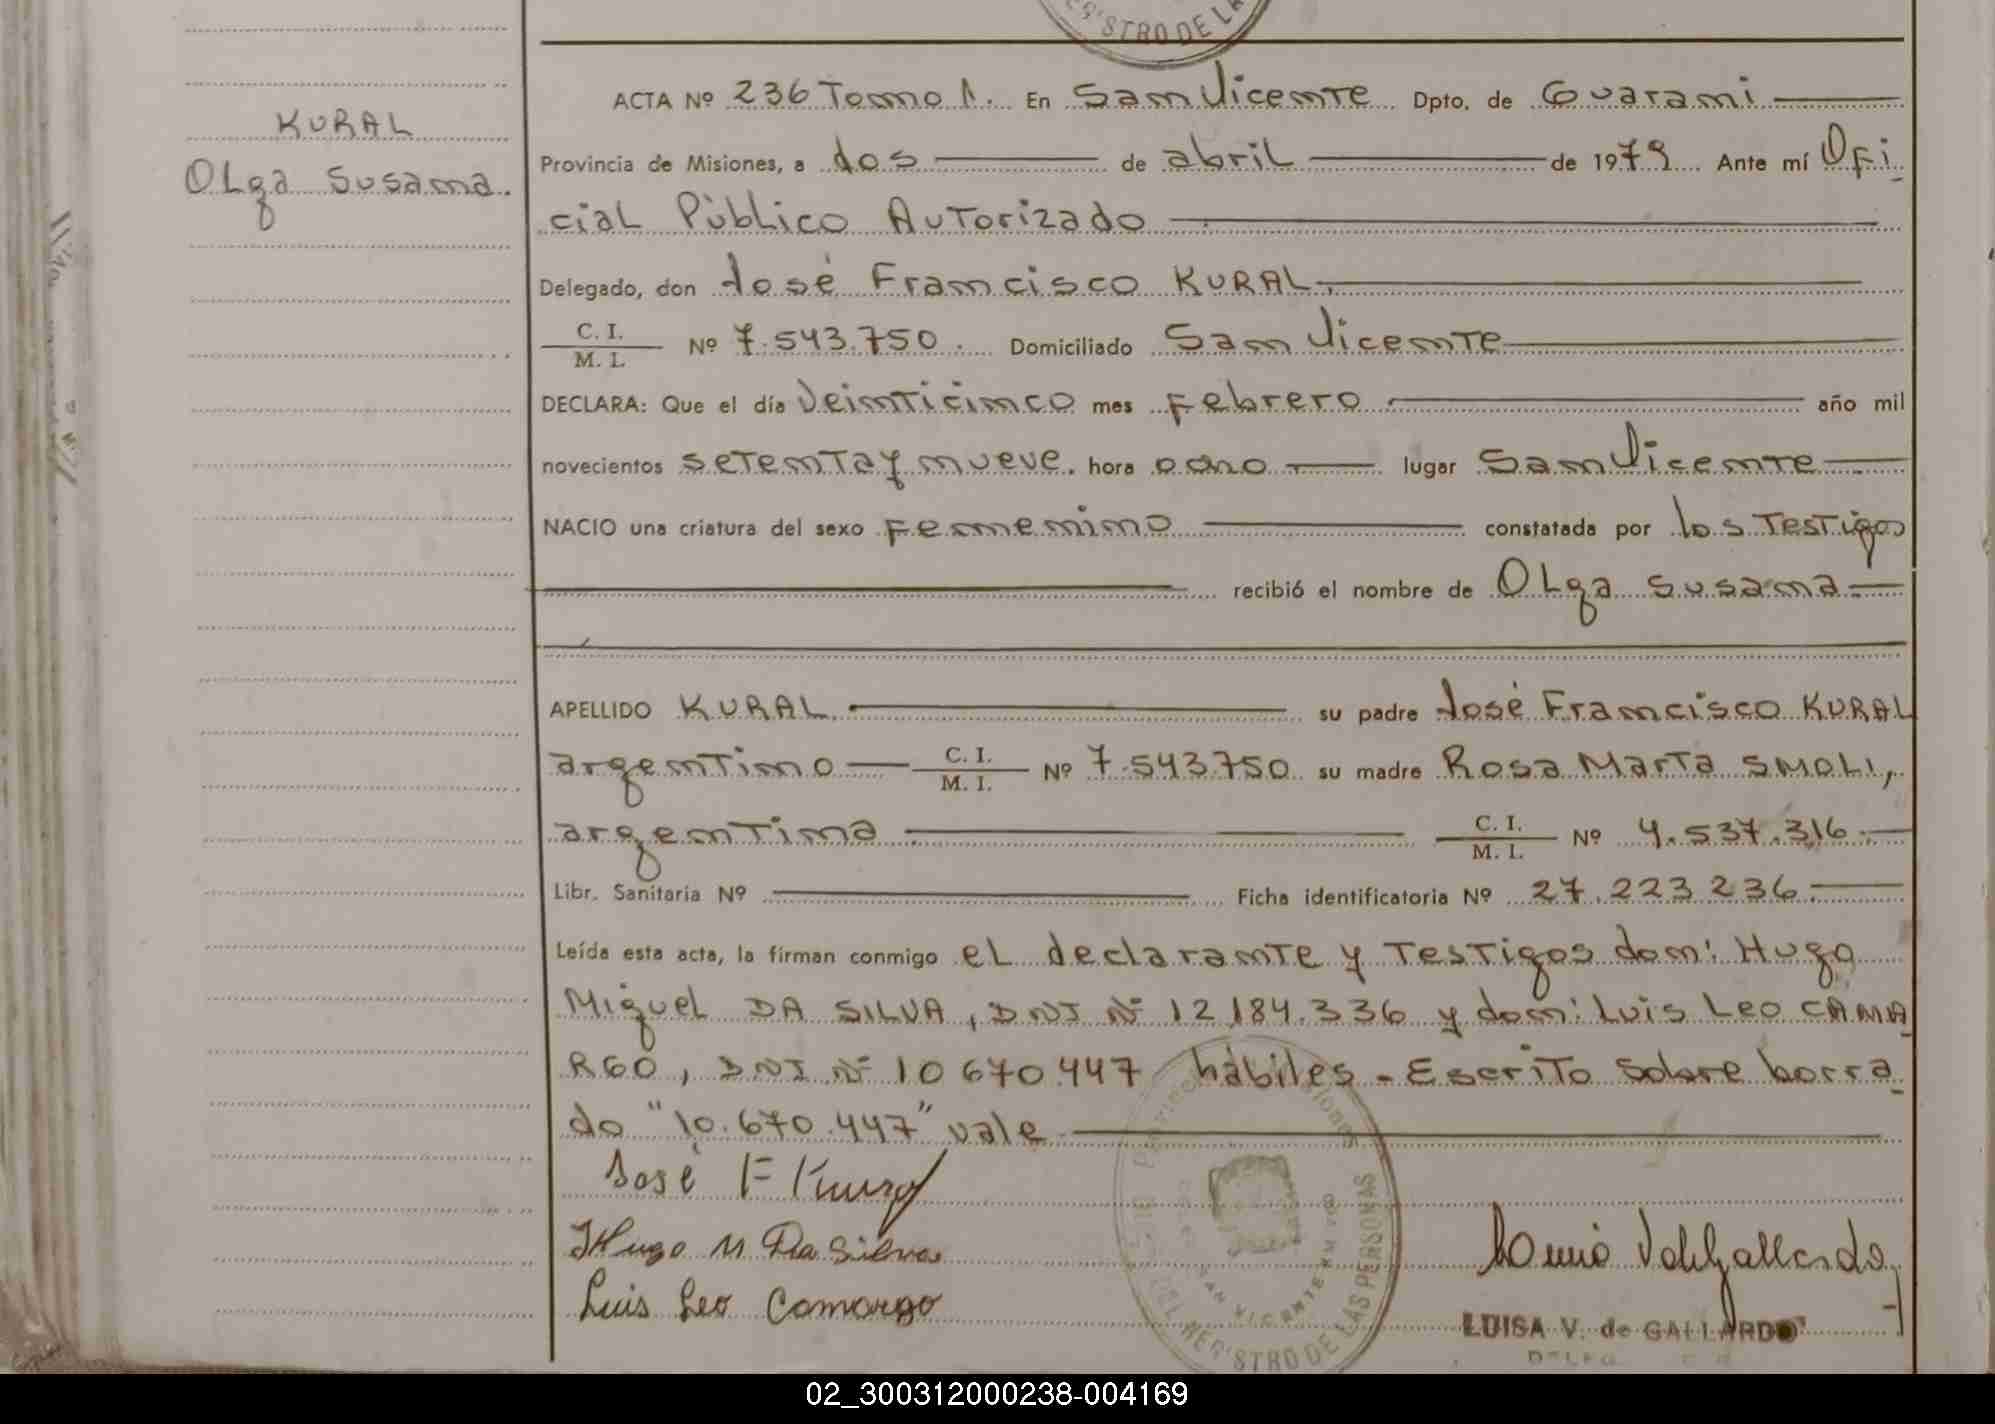 REG'STRO DE LA
KURAL
Olga Susana.
ACTA Nº 236 Tomo 1. En San Vicente Dpto. de Guarani
Provincia de Misiones, a dos de abril de 1979 Ante mí Ofi
cial Público Autorizado
Delegado, don José Francisco KURAL,
C. I.
M. I. Nº 7.543.750. Domiciliado San Vicente
DECLARA: Que el día Veinticinco mes Febrero año mil
novecientos setenta y nueve. hora lugar San Vicente
NACIO una criatura del sexo Femenino constatada por los Testigos
recibió el nombre de Olga Susana
APELLIDO KURAL su padre José Francisco KURAL
argentino C. I.
M. I. Nº 7.543.750 su madre Rosa Marta SMOLI,
argentina C. I.
M. I. Nº 4.537.316.
Libr. Sanitaria Nº Ficha identificatoria Nº 27.223.236.
Leída esta acta, la firman conmigo el declarante y Testigos don: Hugo
Miguel DA SILVA, DNI Nº 12.184.336 y don: Luis Leo CAMA
RGO, DNI Nº 10 670.447 hábiles - Escrito sobre borra
do "10.670.447" vale
José F Kural
Hugo M Da Silva
Luis Leo Camargo
SAN VICENTE
DEL REG'STRO DE LAS PERSONAS
LUISA V. de GALLARDO
02_300312000238-004169